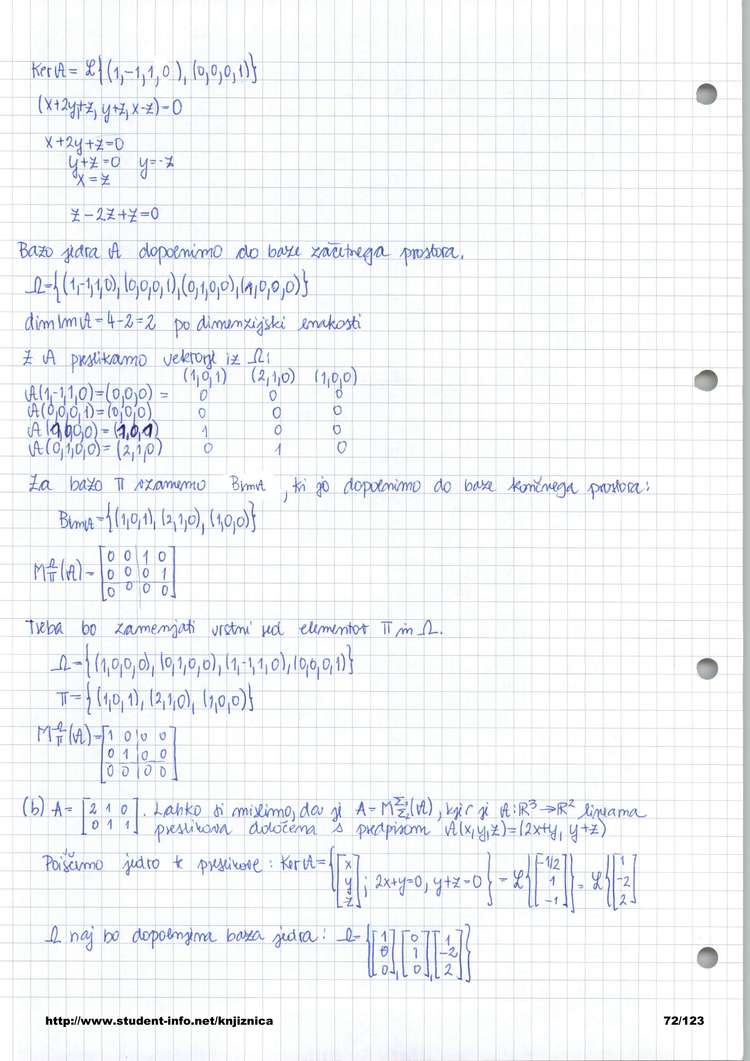 Ker A = L{(1,-1,1,0), (0,0,0,1)}
(x+2y+z, y+z, x-z)=0
x+2y+z=0
y+z=0 y=-z
x=z
z-2z+z=0
Bazo jedra A dopolnimo do baze začetnega prostora.
Ω={(1,-1,1,0), (0,0,0,1), (0,1,0,0), (1,0,0,0)}
dim Im A = 4-2=2 po dimenzijski enakosti
Z A preslikamo vektorje iz Ω:
(1,0,1) (2,1,0) (1,0,0)
A(1,-1,1,0)=(0,0,0) = 0 0 0
A(0,0,0,1)=(0,0,0) 0 0 0
A(1,0,0,0)=(1,0,1) 1 0 0
A(0,1,0,0)=(2,1,0) 0 1 0
Za bazo Π vzamemo BImA, ki jo dopolnimo do baze končnega prostora:
BImA={(1,0,1), (2,1,0), (1,0,0)}
M Ω Π (A) = [0 0 1 0
0 0 0 1
0 0 0 0]
Treba bo zamenjati vrstni red elementov Π in Ω.
Ω={(1,0,0,0), (0,1,0,0), (1,-1,1,0), (0,0,0,1)}
Π={(1,0,1), (2,1,0), (1,0,0)}
M Ω Π (A) = [1 0 0 0
0 1 0 0
0 0 0 0]
(b) A = [2 1 0
0 1 1]. Lahko si mislimo, da je A = M Σ3 Σ2 (A), kjer je A: R³→R² linearna
preslikava določena s predpisom A(x,y,z)=(2x+y, y+z)
Poiščimo jedro te preslikave: Ker A = {[x y z]; 2x+y=0, y+z=0} = L{[-1/2 1 -1]} = L{[1 -2 2]}
Ω naj bo dopolnjena baza jedra: Ω={[1 0 0], [0 1 0], [1 -2 2]}
http://www.student-info.net/knjiznica 72/123